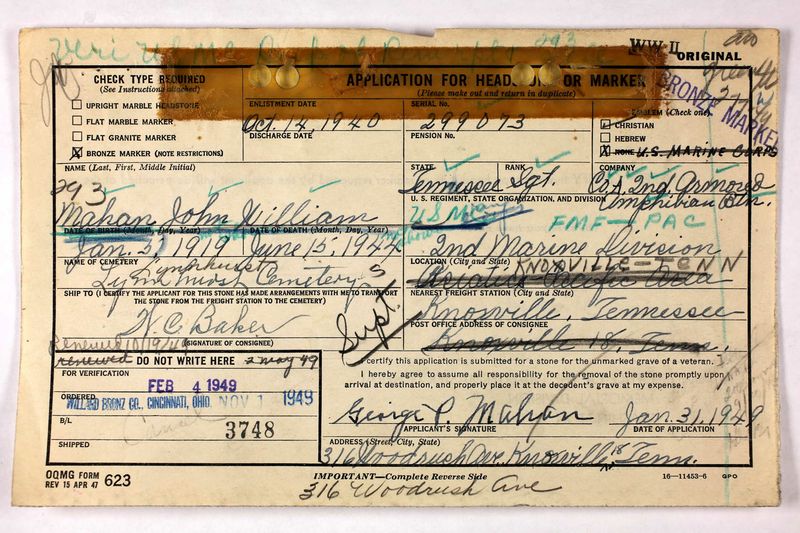 WW II ORIGINAL
CHECK TYPE REQUIRED
(See Instructions attached)
UPRIGHT MARBLE HEADSTONE
FLAT MARBLE MARKER
FLAT GRANITE MARKER
X BRONZE MARKER (NOTE RESTRICTIONS)
APPLICATION FOR HEADSTONE OR MARKER
(Please make out and return in duplicate)
ENLISTMENT DATE
Oct. 14, 1940
DISCHARGE DATE
SERIAL NO.
299073
PENSION NO.
EMBLEM (Check one)
CHRISTIAN
HEBREW
X NONE U.S. MARINE CORPS
BRONZE MARKER
NAME (Last, First, Middle Initial)
293
Mahan, John William
STATE
Tennessee
RANK
Sgt.
COMPANY
Co A, 2nd Armored
Amphibian Btn.
U. S. REGIMENT, STATE ORGANIZATION, AND DIVISION
FMF-PAC
2nd Marine Division
DATE OF BIRTH (Month, Day, Year)
Jan. 5, 1919
DATE OF DEATH (Month, Day, Year)
June 15, 1944
NAME OF CEMETERY
Lynnhurst
Cemetery
LOCATION (City and State)
KNOXVILLE-TENN
Asiatic Pacific Area
SHIP TO (I CERTIFY THE APPLICANT FOR THIS STONE HAS MADE ARRANGEMENTS WITH ME TO TRANSPORT
THE STONE FROM THE FREIGHT STATION TO THE CEMETERY)
N. C. Baker
(SIGNATURE OF CONSIGNEE)
Supt.
NEAREST FREIGHT STATION (City and State)
Knoxville, Tennessee
POST OFFICE ADDRESS OF CONSIGNEE
Knoxville 18, Tenn.
renewed DO NOT WRITE HERE 2 may 49
FOR VERIFICATION
FEB 4 1949
ORDERED
WILLARD BRONZ CO., CINCINNATI, OHIO. NOV 1 1949
B/L
3748
SHIPPED
I certify this application is submitted for a stone for the unmarked grave of a veteran.
I hereby agree to assume all responsibility for the removal of the stone promptly upon
arrival at destination, and properly place it at the decedent's grave at my expense.
George P. Mahan Jan. 31, 1949
APPLICANT'S SIGNATURE DATE OF APPLICATION
ADDRESS (Street, City, State)
316 Woodrush Ave. Knoxville, 18 Tenn.
OQMG FORM
REV 15 APR 47 623
IMPORTANT—Complete Reverse Side
16—11453-6 GPO
316 Woodrush Ave